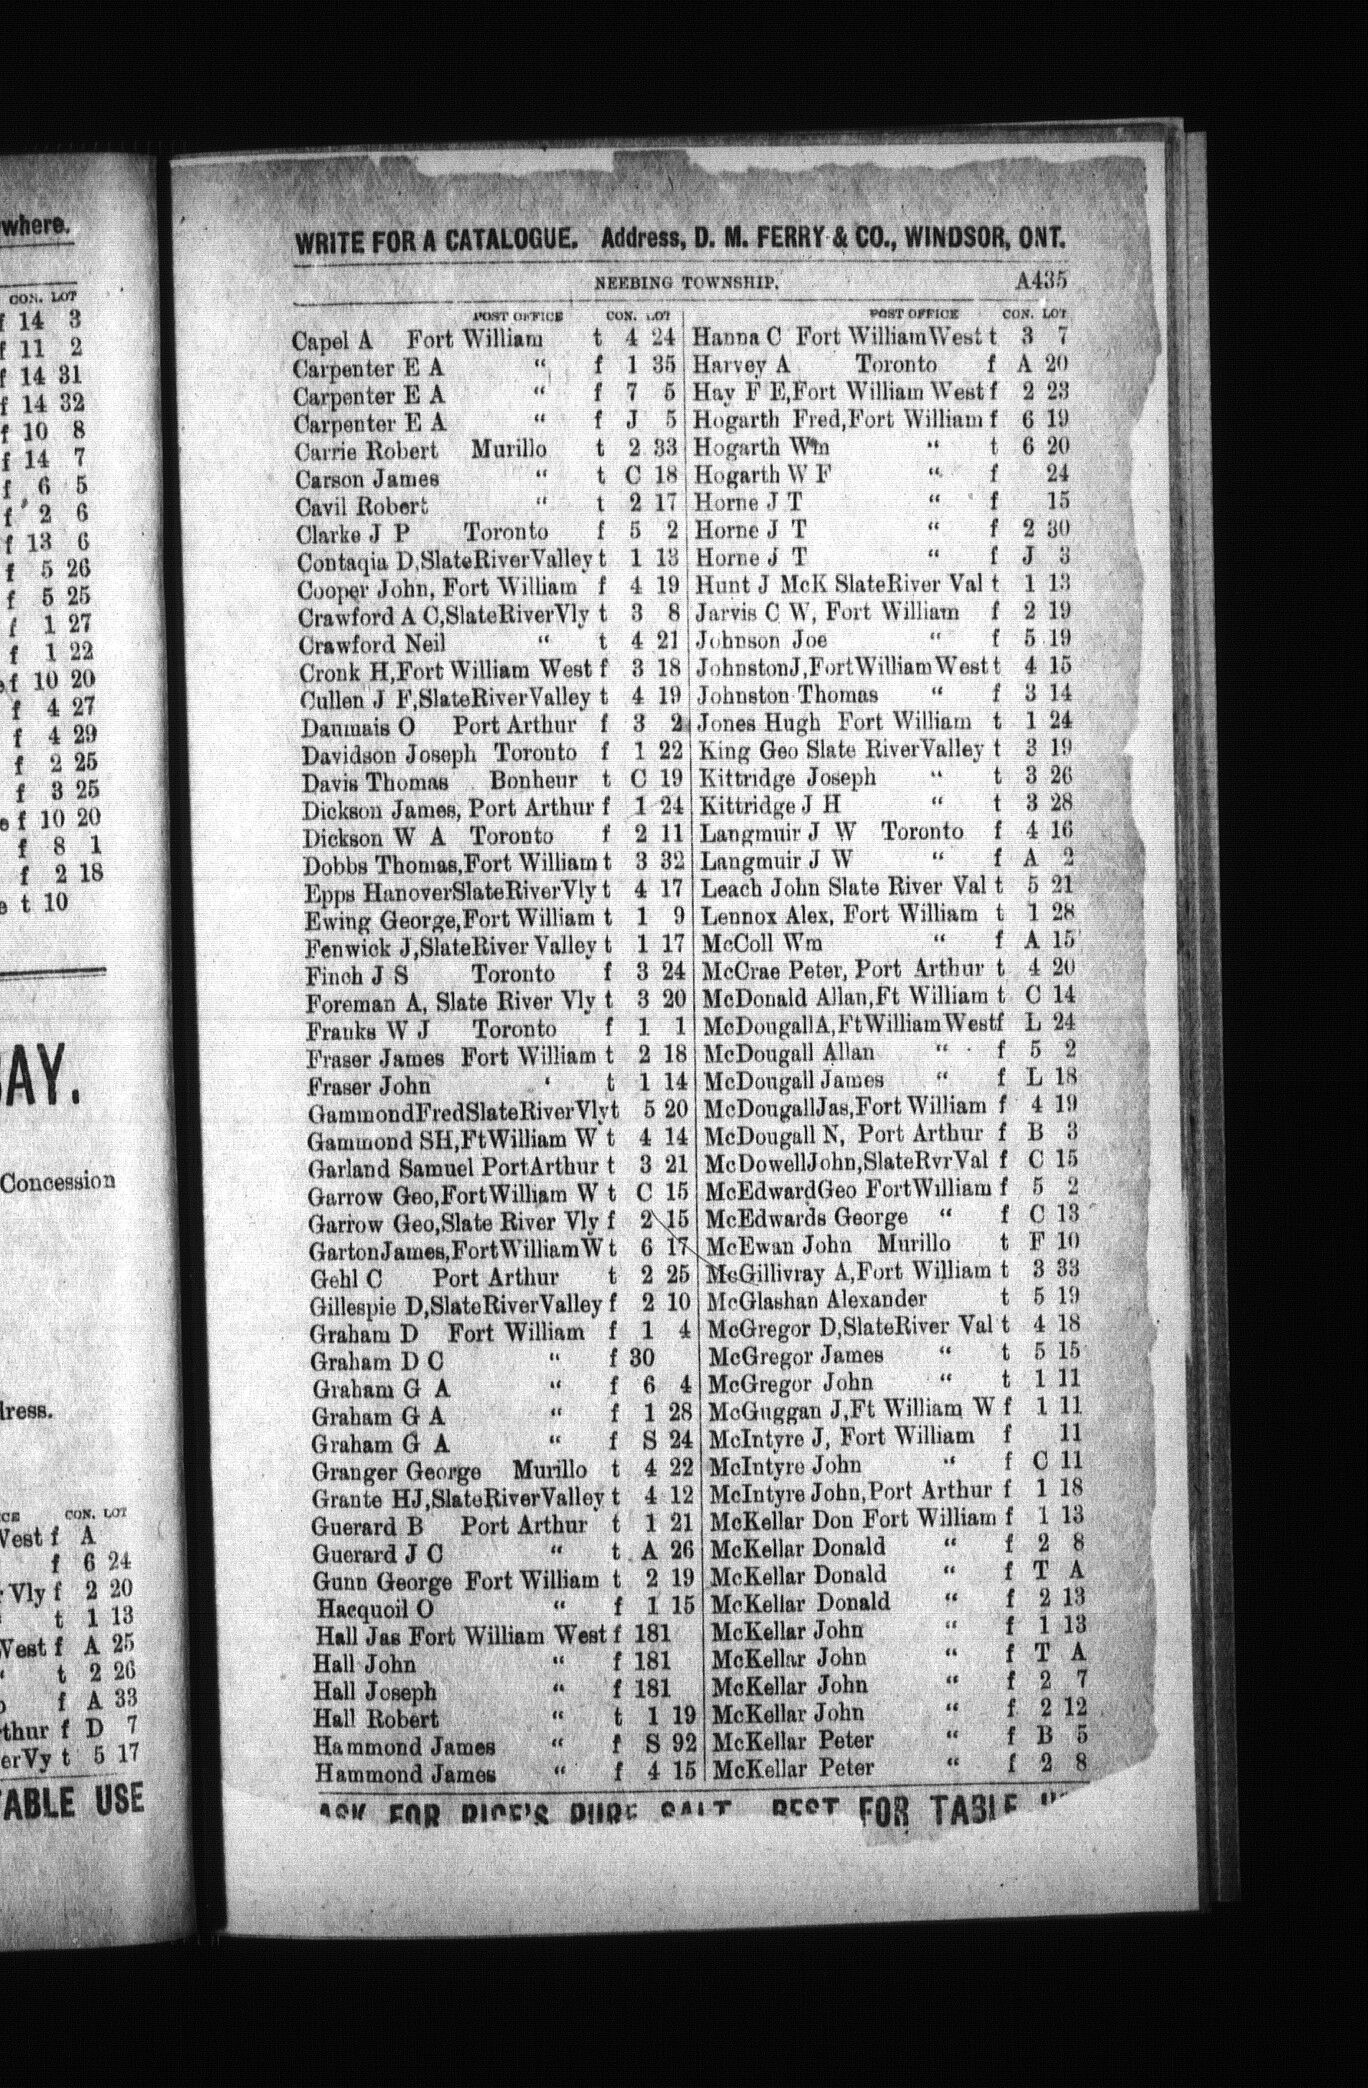 where.
CON. LOT
f 14 3
f 11 2
f 14 31
f 14 32
f 10 8
f 14 7
f 6 5
f 2 6
f 13 6
f 5 26
f 5 25
f 1 27
f 1 22
f 10 20
f 4 27
f 4 29
f 2 25
f 3 25
e f 10 20
f 8 1
f 2 18
e t 10
AY.
Concession
dress.
CE CON. LOT
West f A
f 6 24
r Vly f 2 20
t 1 13
West f A 25
" t 2 26
o f A 33
rthur f D 7
erVy t 5 17
TABLE USE
WRITE FOR A CATALOGUE. Address, D. M. FERRY & CO., WINDSOR, ONT.
NEEBING TOWNSHIP. A435
POST OFFICE CON. LOT
Capel A Fort William t 4 24
Carpenter E A " f 1 35
Carpenter E A " f 7 5
Carpenter E A " f J 5
Carrie Robert Murillo t 2 33
Carson James " t C 18
Cavil Robert " t 2 17
Clarke J P Toronto f 5 2
Contaqia D,SlateRiverValley t 1 13
Cooper John, Fort William f 4 19
Crawford A C,SlateRiverVly t 3 8
Crawford Neil " t 4 21
Cronk H,Fort William West f 3 18
Cullen J F,SlateRiverValley t 4 19
Daumais O Port Arthur f 3 2
Davidson Joseph Toronto f 1 22
Davis Thomas Bonheur t C 19
Dickson James, Port Arthur f 1 24
Dickson W A Toronto f 2 11
Dobbs Thomas,Fort William t 3 32
Epps HanoverSlateRiverVly t 4 17
Ewing George,Fort William t 1 9
Fenwick J,SlateRiver Valley t 1 17
Finch J S Toronto f 3 24
Foreman A, Slate River Vly t 3 20
Franks W J Toronto f 1 1
Fraser James Fort William t 2 18
Fraser John ' t 1 14
GammondFredSlateRiverVlyt 5 20
Gammond SH,FtWilliam W t 4 14
Garland Samuel PortArthur t 3 21
Garrow Geo,FortWilliam W t C 15
Garrow Geo,Slate River Vly f 2 15
GartonJames,FortWilliamW t 6 17
Gehl C Port Arthur t 2 25
Gillespie D,SlateRiverValley f 2 10
Graham D Fort William f 1 4
Graham D C " f 30
Graham G A " f 6 4
Graham G A " f 1 28
Graham G A " f S 24
Granger George Murillo t 4 22
Grante HJ,SlateRiverValley t 4 12
Guerard B Port Arthur t 1 21
Guerard J C " t A 26
Gunn George Fort William t 2 19
Hacquoil O " f 1 15
Hall Jas Fort William West f 181
Hall John " f 181
Hall Joseph " f 181
Hall Robert " t 1 19
Hammond James " f S 92
Hammond James " f 4 15
POST OFFICE CON. LOT
Hanna C Fort WilliamWest t 3 7
Harvey A Toronto f A 20
Hay F E,Fort William West f 2 23
Hogarth Fred,Fort William f 6 19
Hogarth Wm " t 6 20
Hogarth W F " f 24
Horne J T " f 15
Horne J T " f 2 30
Horne J T " f J 3
Hunt J McK SlateRiver Val t 1 13
Jarvis C W, Fort William f 2 19
Johnson Joe " f 5 19
JohnstonJ,FortWilliamWest t 4 15
Johnston Thomas " f 3 14
Jones Hugh Fort William t 1 24
King Geo Slate RiverValley t 3 19
Kittridge Joseph " t 3 26
Kittridge J H " t 3 28
Langmuir J W Toronto f 4 16
Langmuir J W " f A 2
Leach John Slate River Val t 5 21
Lennox Alex, Fort William t 1 28
McColl Wm " f A 15
McCrae Peter, Port Arthur t 4 20
McDonald Allan,Ft William t C 14
McDougallA,FtWilliamWestf L 24
McDougall Allan " f 5 2
McDougall James " f L 18
McDougallJas,Fort William f 4 19
McDougall N, Port Arthur f B 3
McDowellJohn,SlateRvrVal f C 15
McEdwardGeo FortWilliam f 5 2
McEdwards George " f C 13
McEwan John Murillo t F 10
McGillivray A,Fort William t 3 33
McGlashan Alexander t 5 19
McGregor D,SlateRiver Val t 4 18
McGregor James " t 5 15
McGregor John " t 1 11
McGuggan J,Ft William W f 1 11
McIntyre J, Fort William f 11
McIntyre John " f C 11
McIntyre John,Port Arthur f 1 18
McKellar Don Fort William f 1 13
McKellar Donald " f 2 8
McKellar Donald " f T A
McKellar Donald " f 2 13
McKellar John " f 1 13
McKellar John " f T A
McKellar John " f 2 7
McKellar John " f 2 12
McKellar Peter " f B 5
McKellar Peter " f 2 8
ASK FOR RICE'S PURE SALT. BEST FOR TABLE